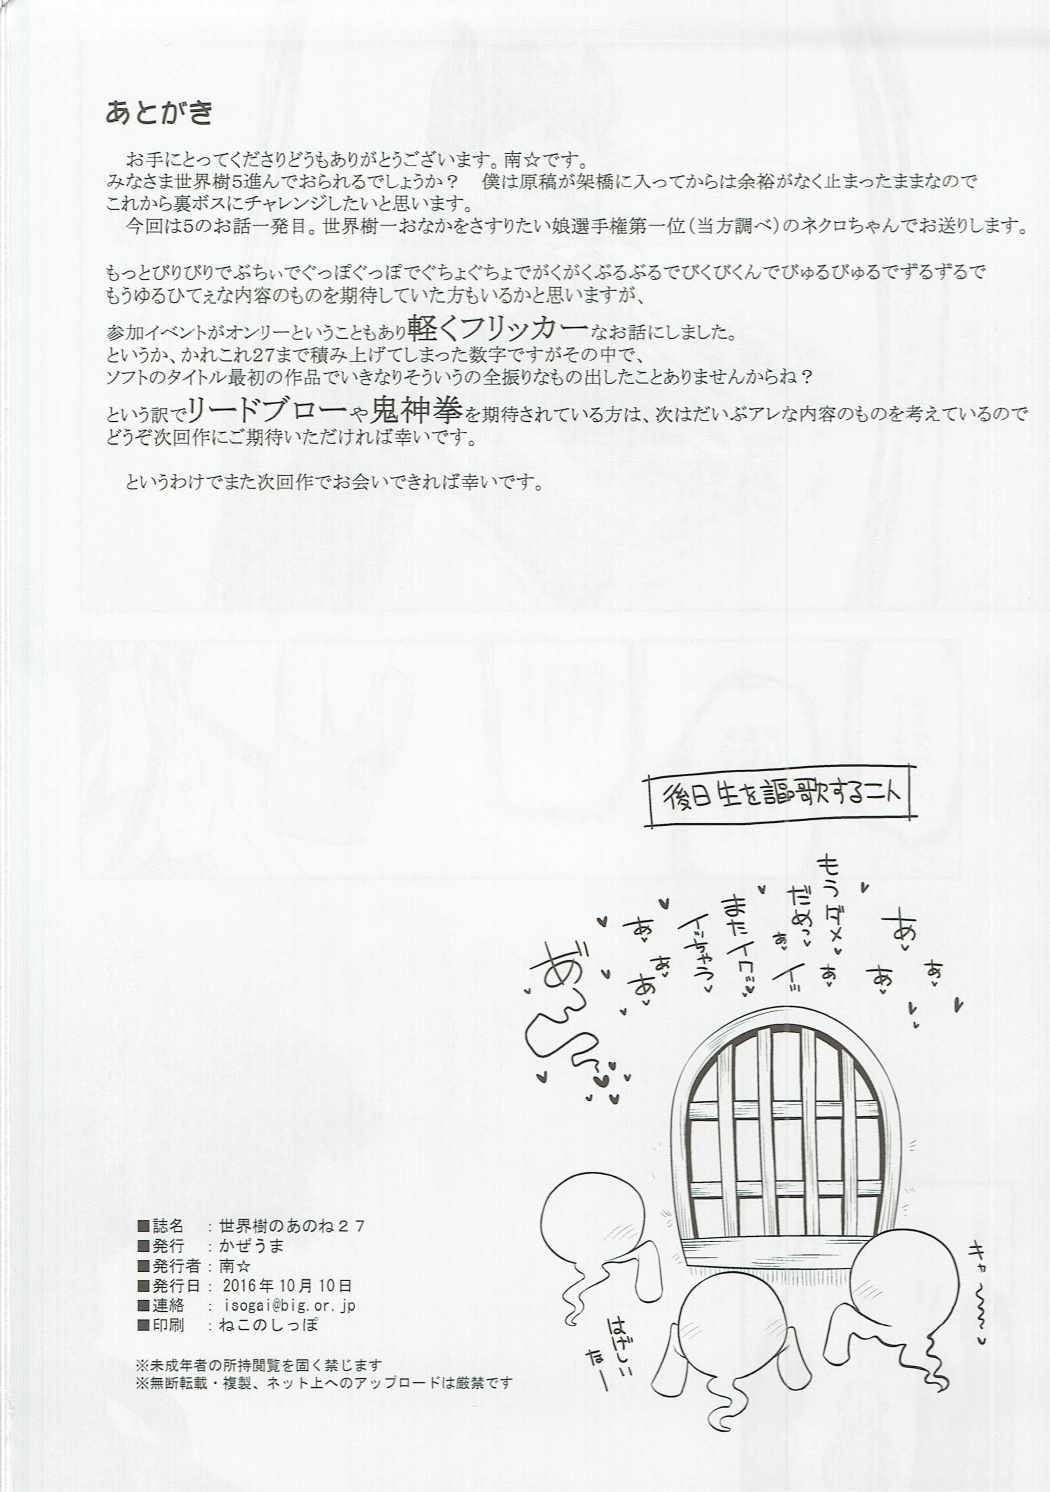 あとがき
お手にとってくださりどうもありがとうございます。南☆です。
みなさま世界樹5進んでおられるでしょうか?　僕は原稿が架橋に入ってからは余裕がなく止まったままなので
これから裏ボスにチャレンジしたいと思います。
今回は5のお話一発目。世界樹一おなかをさすりたい娘選手権第一位(当方調べ)のネクロちゃんでお送りします。
もっとびりびりでぶちぃでぐっぽぐっぽでぐちょぐちょでがくがくぶるぶるでびくびくんでびゅるびゅるでずるずるで
もうゆるひてぇな内容のものを期待していた方もいるかと思いますが、
参加イベントがオンリーということもあり軽くフリッカーなお話にしました。
というか、かれこれ27まで積み上げてしまった数字ですがその中で、
ソフトのタイトル最初の作品でいきなりそういうの全振りなもの出したことありませんからね?
という訳でリードブローや鬼神拳を期待されている方は、次はだいぶアレな内容のものを考えているので
どうぞ次回作にご期待いただければ幸いです。
というわけでまた次回作でお会いできれば幸いです。
後日生を謳歌する二人
もうダメ♥
だめっ♥
あ♥
イッ
またイクッ♥
イッちゃう♥
あ♥
あ♥
あ♥
あ♥
あ♥
あ♥
あ♥
キャ〜♥
はげしい
なー
■誌名　：世界樹のあのね27
■発行　：かぜうま
■発行者：南☆
■発行日：2016年10月10日
■連絡　：isogai@big.or.jp
■印刷　：ねこのしっぽ
※未成年者の所持閲覧を固く禁じます
※無断転載・複製、ネット上へのアップロードは厳禁です